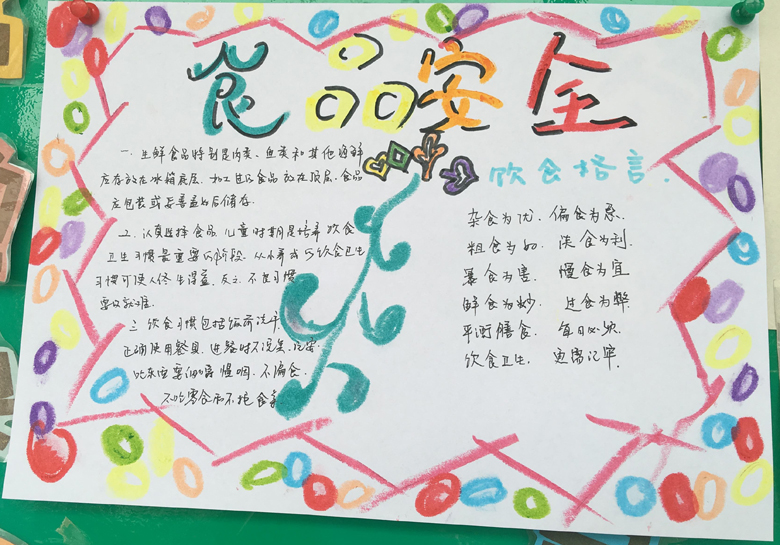 食品安全
一、生鲜食品特别是肉类、鱼类和其他海鲜
应存放在冰箱底层,加工包心食品放在顶层,食品
应包装或妥善盖好后储存.
二、认真选择食品,儿童时期是培养饮食
卫生习惯最重要的阶段,从小养成的饮食卫生
习惯可使人终生得益,反之,不良习惯
要改就难.
三、饮食习惯包括饭前洗手,
正确使用餐具,进餐时不说笑,
吃东西要细嚼慢咽,不偏食,
不吃零食和不挑食
饮食格言.
杂食为优,偏食为忌,
粗食为好,淡食为利,
暴食为害,慢食为宜
鲜食为妙,过食为弊,
平衡膳食,每日必须
饮食卫生,更需记牢.